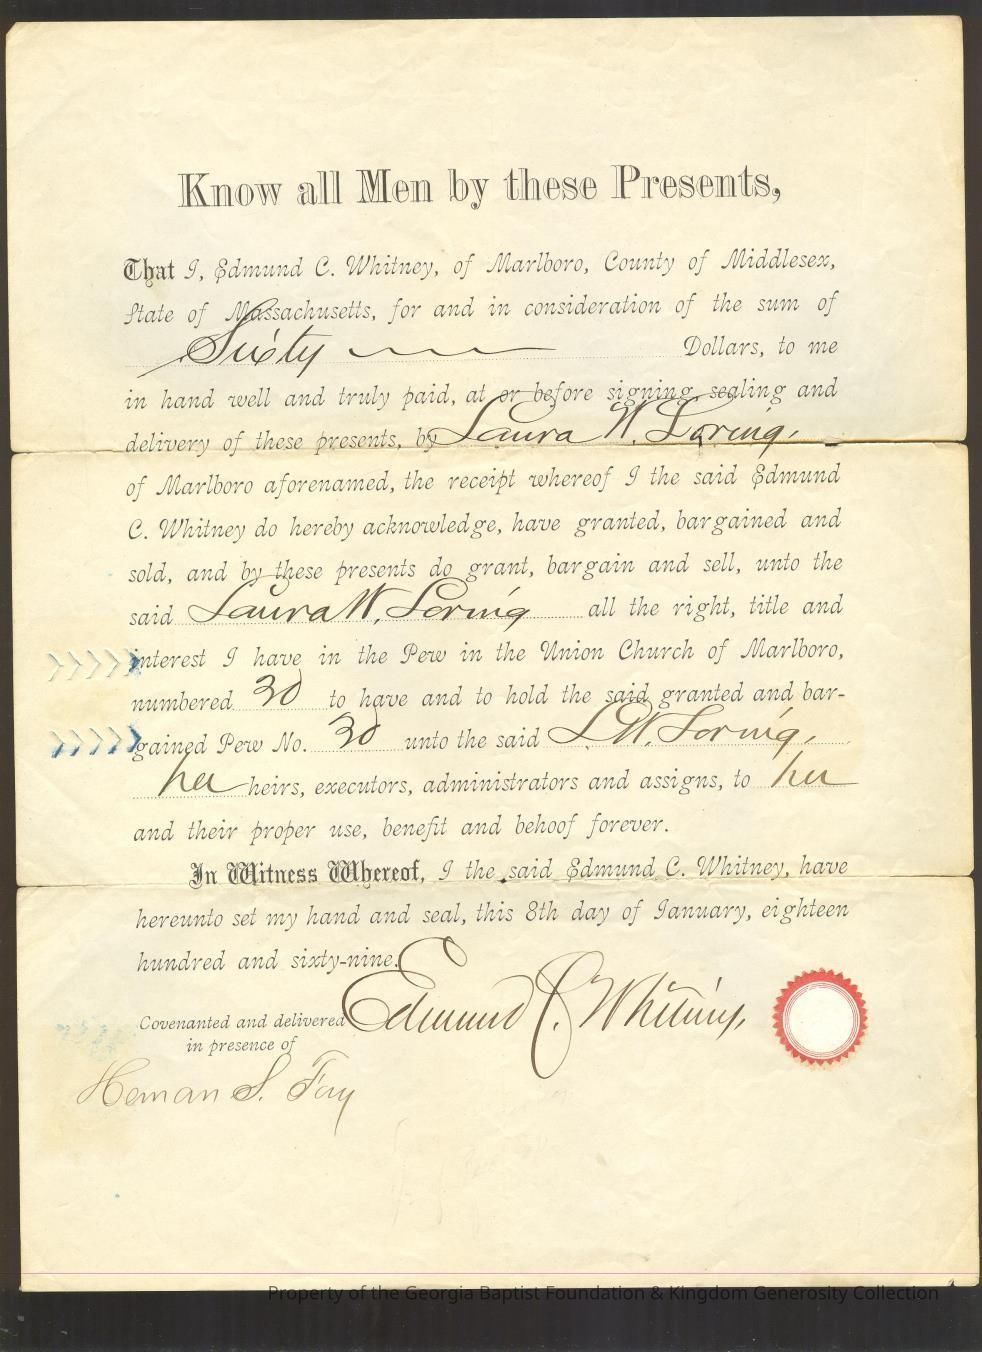 Know all Men by these Presents,
That I, Edmund C. Whitney, of Marlboro, County of Middlesex,
State of Massachusetts, for and in consideration of the sum of
Sixty Dollars, to me
in hand well and truly paid, at or before signing, sealing and
delivery of these presents, by Laura W. Loring,
of Marlboro aforenamed, the receipt whereof I the said Edmund
C. Whitney do hereby acknowledge, have granted, bargained and
sold, and by these presents do grant, bargain and sell, unto the
said Laura W. Loring all the right, title and
interest I have in the Pew in the Union Church of Marlboro,
numbered 30 to have and to hold the said granted and bar-
gained Pew No. 30 unto the said L. W. Loring,
her heirs, executors, administrators and assigns, to her
and their proper use, benefit and behoof forever.
In Witness Whereof, I the said Edmund C. Whitney, have
hereunto set my hand and seal, this 8th day of January, eighteen
hundred and sixty-nine.
Edmund C. Whitney,
Covenanted and delivered
in presence of
Heman S. Fay
Property of the Georgia Baptist Foundation & Kingdom Generosity Collection